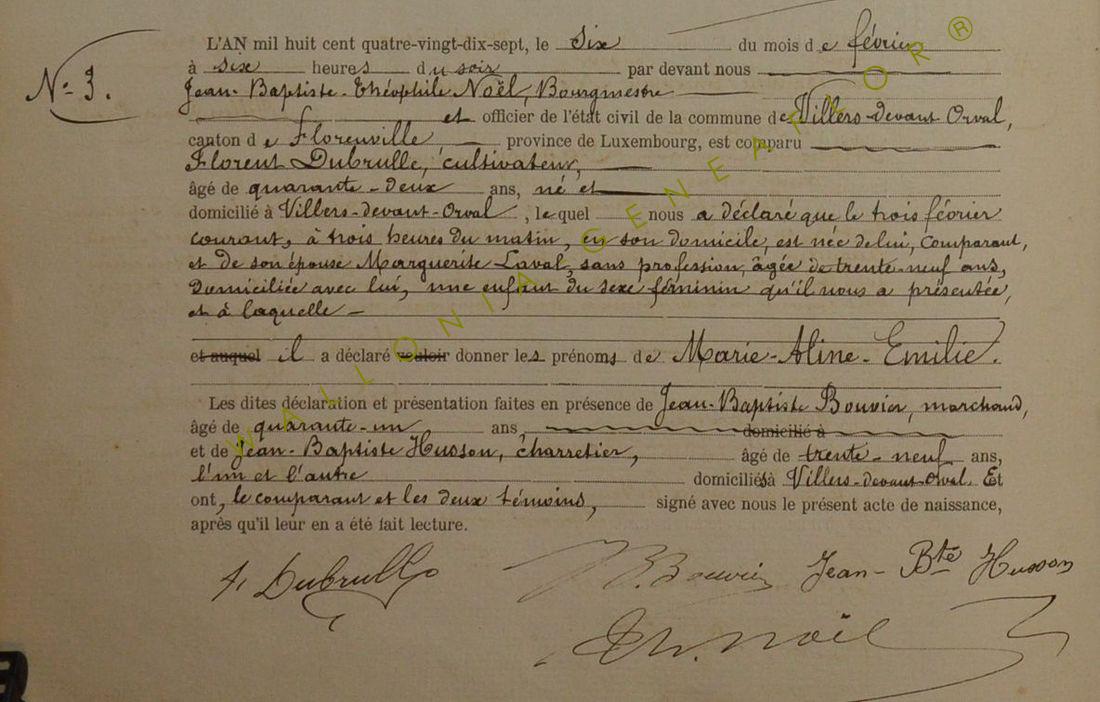 L'AN mil huit cent quatre-vingt-dix-sept, le six du mois de février
N° 3. à six heures du soir par devant nous
Jean-Baptiste-Théophile Noël, Bourgmestre
et officier de l'état civil de la commune de Villers-devant Orval,
canton de Florenville province de Luxembourg, est comparu
Florent Dubrulle, cultivateur,
âgé de quarante-deux ans, né et
domicilié à Villers-devant-Orval, lequel nous a déclaré que le trois février
courant, à trois heures du matin, en son domicile, est née de lui, comparant,
et de son épouse Marguerite Laval, sans profession, âgée de trente-neuf ans,
domiciliée avec lui, une enfant du sexe féminin qu'il nous a présentée,
et à laquelle
et auquel il a déclaré vouloir donner les prénoms de Marie-Aline-Emilie.
Les dites déclaration et présentation faites en présence de Jean-Baptiste Bouvier, marchand,
âgé de quarante-un ans domicilié à
et de Jean-Baptiste Husson, charretier, âgé de trente-neuf ans,
l'un et l'autre domiciliés à Villers-devant-Orval. Et
ont, le comparant et les deux témoins, signé avec nous le présent acte de naissance,
après qu'il leur en a été fait lecture.
F Dubrulle J B. Bouvier Jean-Bte Husson
Th. Noël
WALLONIA GENEAFLOR ®